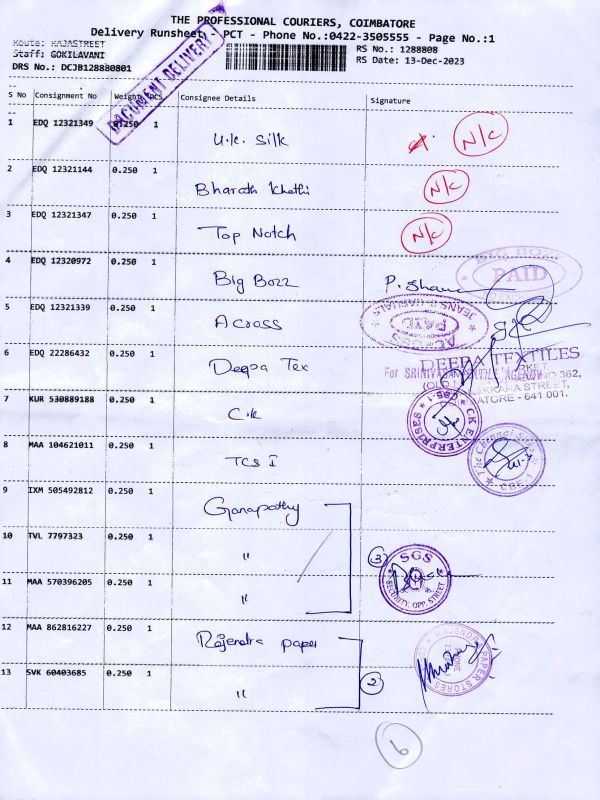 THE PROFESSIONAL COURIERS, COIMBATORE
Delivery Runsheet - PCT - Phone No.:0422-3505555 - Page No.:1
Route: RAJASTREET
Staff: GOKILAVANI
DRS No.: DCJB128880801
RS No.: 1288808
RS Date: 13-Dec-2023
DOCUMENT DELIVERY
S No Consignment No Weight PCS Consignee Details Signature
1 EDQ 12321349 0.250 1 U.K. Silk N/C
2 EDQ 12321144 0.250 1 Bharath Khathi N/C
3 EDQ 12321347 0.250 1 Top Notch N/C
4 EDQ 12320972 0.250 1 Big Bozz P. Shana
PAID
5 EDQ 12321339 0.250 1 Across
JEANS PAID
6 EDQ 22286432 0.250 1 Deepa Tex
DEEPA TEXTILES
For
MARKET
NO 362,
STREET,
COIMBATORE - 641 001.
7 KUR 530889188 0.250 1 C.K
CK ENTERPRISES CBE-1
8 MAA 104621011 0.250 1 TCS I
The Chennai CBE-1
9 IXM 505492812 0.250 1 Ganapathy
10 TVL 7797323 0.250 1 "
3
SGS
SECURITY, OPP. STREET
11 MAA 570396205 0.250 1 "
12 MAA 862816227 0.250 1 Rajendra paper
RAJENDRA PAPER STORES
13 SVK 60403685 0.250 1 "
2
6